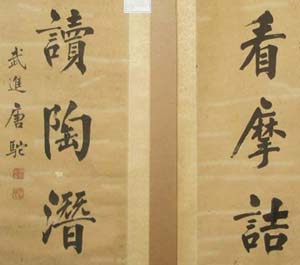 看摩詰
讀陶潛
武進唐駝